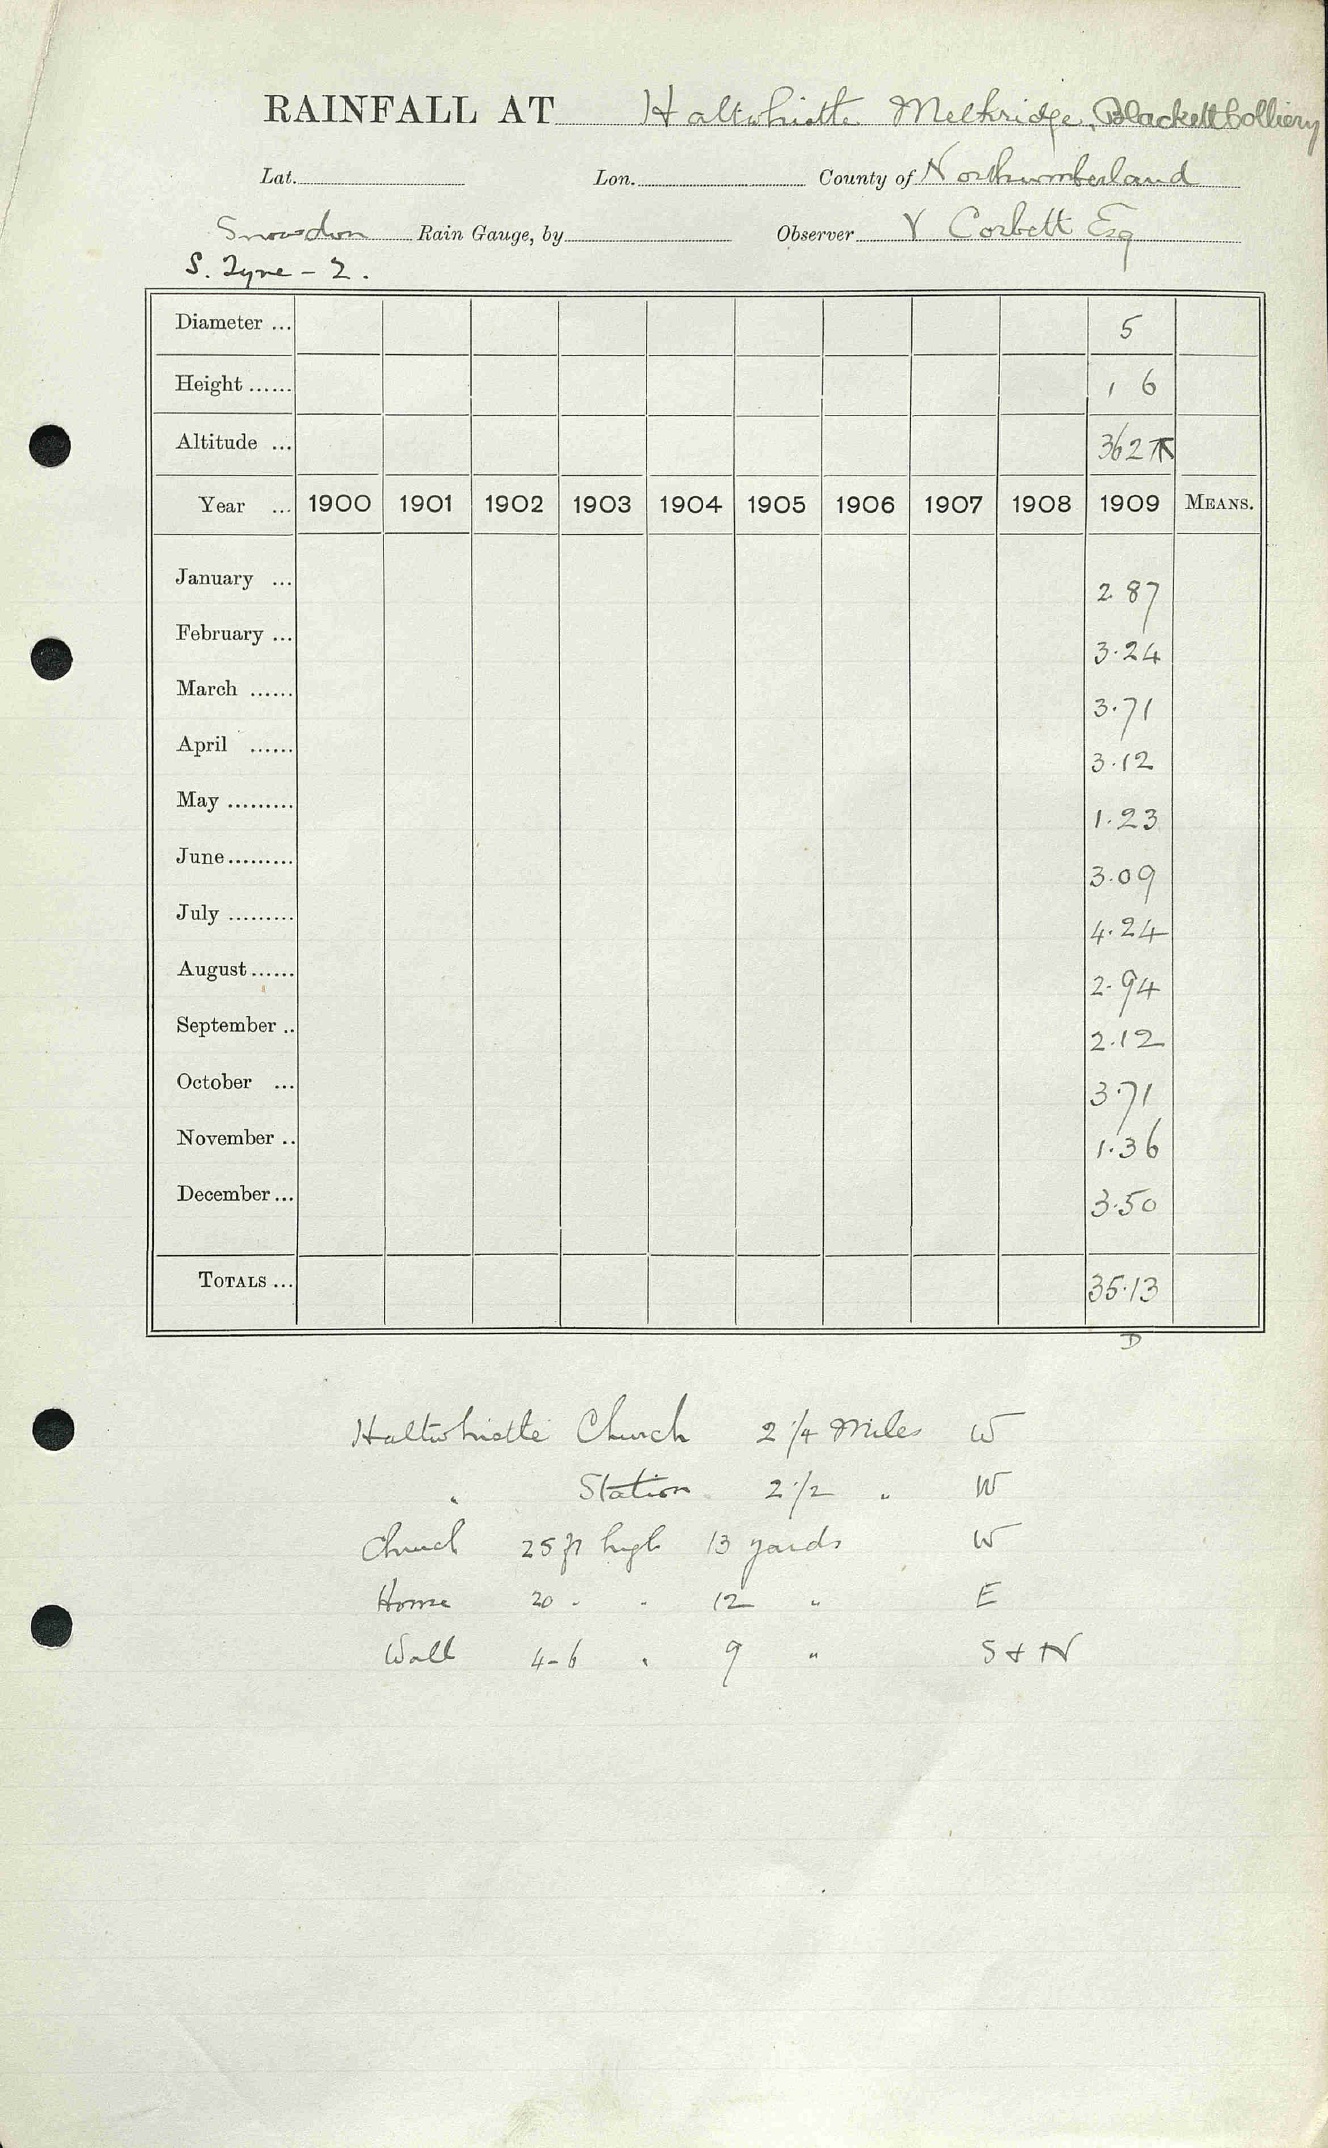 RAINFALL AT Haltwhistle Melkridge, Blackett Colliery
Lat. Lon. County of Northumberland
Snowdon Rain Gauge, by Observer V Corbett Esq
S. Tyne - 2.
Diameter ... 5
Height ...... 1 6
Altitude ... 362
Year ... 1900 1901 1902 1903 1904 1905 1906 1907 1908 1909 MEANS.
January ... 2 87
February ... 3.24
March ...... 3.71
April ...... 3.12
May ......... 1.23
June ......... 3.09
July ......... 4.24
August ...... 2.94
September .. 2.12
October ... 3.71
November .. 1.36
December ... 3.50
TOTALS ... 35.13
D
Haltwhistle Church 2 1/4 Miles W
" Station 2 1/2 " W
Church 25 ft high 13 yards W
House 20 " " 12 " E
Wall 4-6 " 9 " S & N